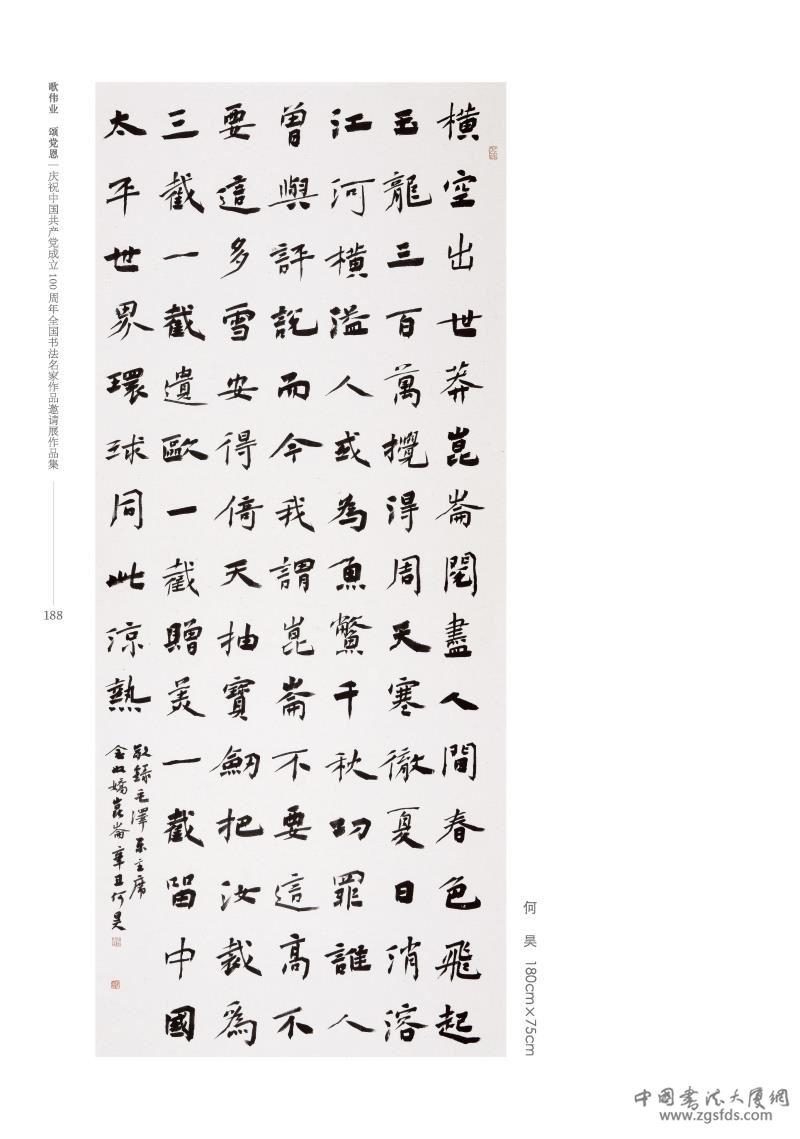 橫空出世莽崑崙閱盡人間春色飛起
玉龍三百萬攪得周天寒徹夏日消溶
江河橫溢人或為魚鱉千秋功罪誰人
曾與評說而今我謂崑崙不要這高不
要這多雪安得倚天抽寶劒把汝裁爲
三截一截遺歐一截贈美一截留中國
太平世界環球同此涼熱
敬録毛澤东主席
念奴嬌崑崙辛丑何昊
何 昊 180cm×75cm
歌伟业 颂党恩｜庆祝中国共产党成立100周年全国书法名家作品邀请展作品集
188
中国书法大厦網
www.zgsfds.com